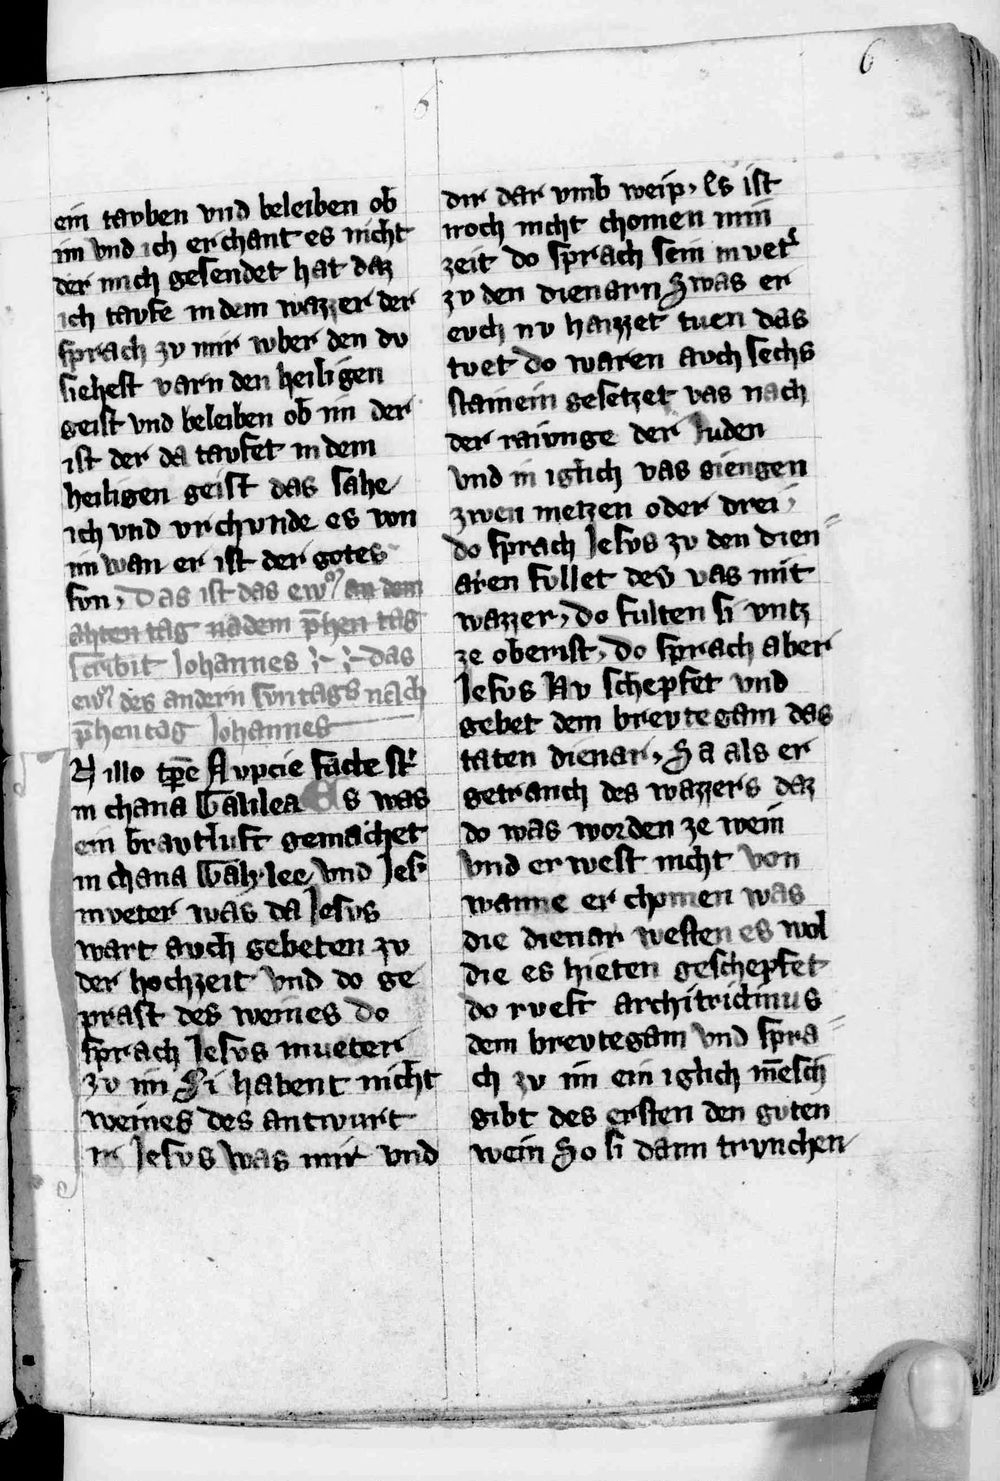 6
6
ein tavben vnd beleiben ob
im vnd ich erchant es nicht
der mich gesendet hat daz
ich tavfe in dem wazzer der
sprach zv mir vber den dv
siehest varn den heiligen
geist vnd beleiben ob im der
ist der da tavfet in dem
heiligen geist das sahe
ich vnd vrchvnde es von
im wan er ist der gotes
svn, Das ist das ew͛ an dem
ahten tag na dem p̄hen tag
scribit Johannes das
ew͛ des andern svntags nach
p̄hen tag Johannes
N illo tp̄e Nvpcie facte st̄
in chana Galilea Es was
ein bravtluft gemachet
in chana Galylee vnd Jes᷒
mveter was da Jesvs
wart avch gebeten zv
der hochzeit vnd do ge
prast des weines Do
sprach Jesvs mueter
zv im Si habent nicht
weines des antwurt
ir Jesvs was mir vnd
dir dar vmb weip, Es ist
noch nicht chomen min
zeit do sprach sein mvet͛
zv den dienarn Swas er
evch nv haizzet tuen das
tvet Do waren avch sechs
stainein gesetzet vas nach
der rainvnge der Juden
vnd in iglich vas giengen
zwen metzen oder drei,
do sprach Jesvs zv den dien=
aren fvllet dev̄ vas mit
wazzer, Do fulten si vntz
ze oberist, Do sprach aber
Jesvs Nv schepfet vnd
gebet dem brevtegam das
taten dienar, Sa als er
getranch des wazzers daz
do was worden ze wein
vnd er west nicht von
wanne er chomen was
die dienar westen es wol
die es hieten geschepfet
do rveft architriclinus
dem brevtegam vnd spra=
ch zv im ein iglich m̄esch
gibt des ersten den gvten
wein So si dann trvnchen